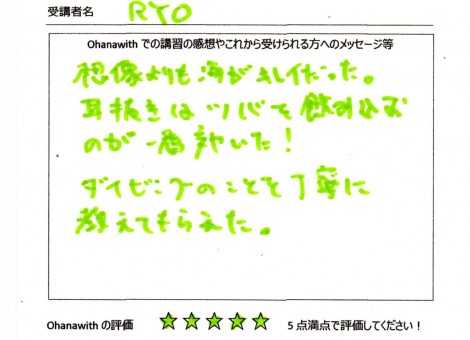 受講者名 RYO
Ohanawith での講習の感想やこれから受けられる方へのメッセージ等
想像よりも海がキレイだった。
耳抜きはツバを飲みこむ
のが一番効いた！
ダイビングのことを丁寧に
教えてもらえた。
Ohanawith の評価 ☆☆☆☆☆ 5 点満点で評価してください！